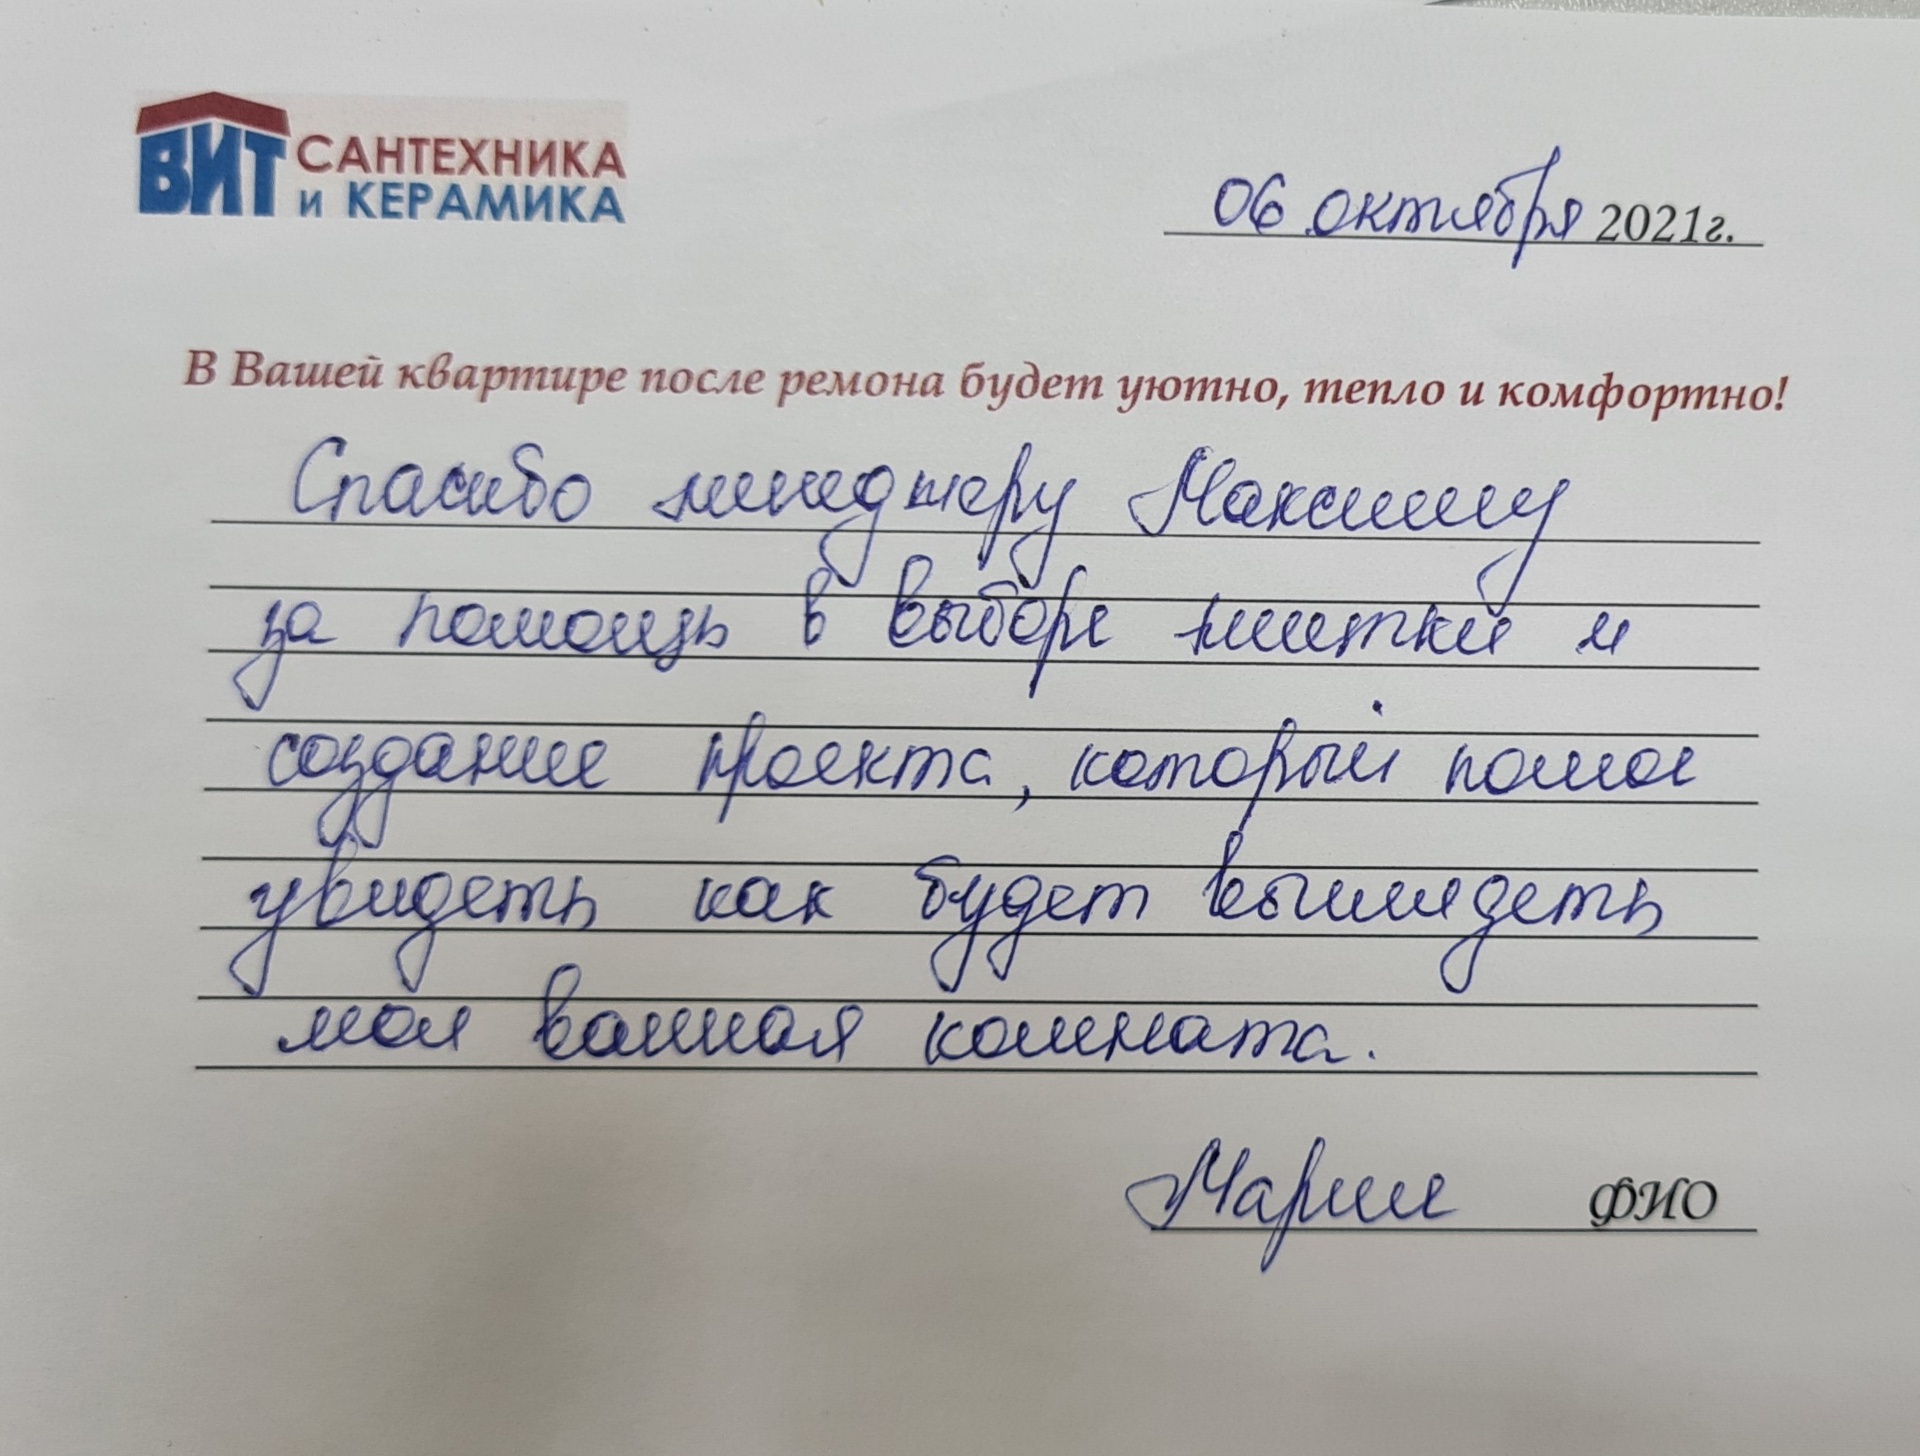 ВИТ САНТЕХНИКА
и КЕРАМИКА
06 октября 2021г.
В Вашей квартире после ремона будет уютно, тепло и комфортно!
Спасибо менеджеру Максиму
за помощь в выборе плитки и
создание проекта, который помог
увидеть как будет выглядеть
моя ванная комната.
Мария ФИО